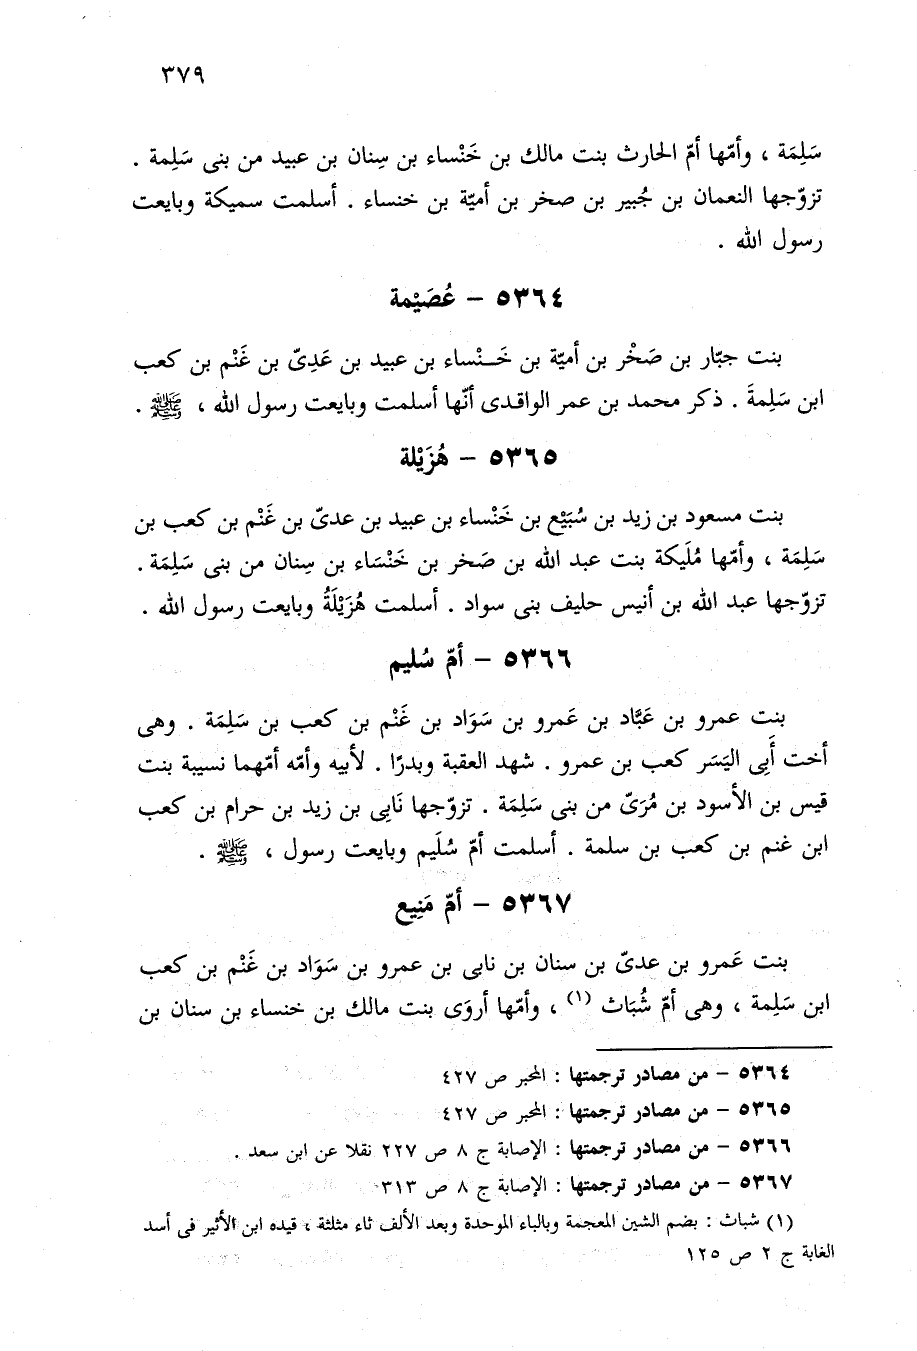 ٣٧٩
سَلِمَة ، وأمّها أمّ الحارث بنت مالك بن خَنْساء بن سِنان بن عبيد من بنى سَلِمة .
تزوّجها النعمان بن جُبير بن صخر بن أميّة بن خنساء . أسلمت سميكة وبايعت
رسول الله .
٥٣٦٤ – عُصَيْمة
بنت جبّار بن صَخْر بن أميّة بن خَنْساء بن عبيد بن عَدِىّ بن غَنْم بن كعب
ابن سَلِمةَ . ذكر محمد بن عمر الواقدى أنّها أسلمت وبايعت رسول الله ، ﷺ .
٥٣٦٥ – هُزَيْلة
بنت مسعود بن زيد بن سُبَيْع بن خَنْساء بن عبيد بن عدىّ بن غَنْم بن كعب بن
سَلِمَة ، وأمّها مُلَيكة بنت عبد الله بن صَخر بن خَنْسَاء بن سِنان من بنى سَلِمَة .
تزوّجها عبد الله بن أنيس حليف بنى سواد . أسلمت هُزَيْلَةُ وبايعت رسول الله .
٥٣٦٦ – أمّ سُليم
بنت عمرو بن عَبَّاد بن عَمرو بن سَوَاد بن غَنْم بن كعب بن سَلِمَة . وهى
أخت أَبِى اليَسَر كعب بن عمرو . شهد العقبة وبدرًا . لأبيه وأمّه أمّهما نسيبة بنت
قيس بن الأسود بن مُرَىّ من بنى سَلِمَة . تزوّجها نَابِى بن زيد بن حرام بن كعب
ابن غنم بن كعب بن سلمة . أسلمت أمّ سُلَيم وبايعت رسول ، ﷺ .
٥٣٦٧ – أمّ مَنِيع
بنت عَمرو بن عدىّ بن سنان بن نابى بن عمرو بن سَوَاد بن غَنْم بن كعب
ابن سَلِمة ، وهى أمّ شُبَاث (١) ، وأمّها أروَى بنت مالك بن خنساء بن سنان بن
٥٣٦٤ – من مصادر ترجمتها : المحبر ص ٤٢٧
٥٣٦٥ – من مصادر ترجمتها : المحبر ص ٤٢٧
٥٣٦٦ – من مصادر ترجمتها : الإصابة ج ٨ ص ٢٢٧ نقلا عن ابن سعد .
٥٣٦٧ – من مصادر ترجمتها : الإصابة ج ٨ ص ٣١٣
(١) شباث : بضم الشين المعجمة وبالباء الموحدة وبعد الألف ثاء مثلثة ، قيده ابن الأثير فى أسد
الغابة ج ٢ ص ١٢٥